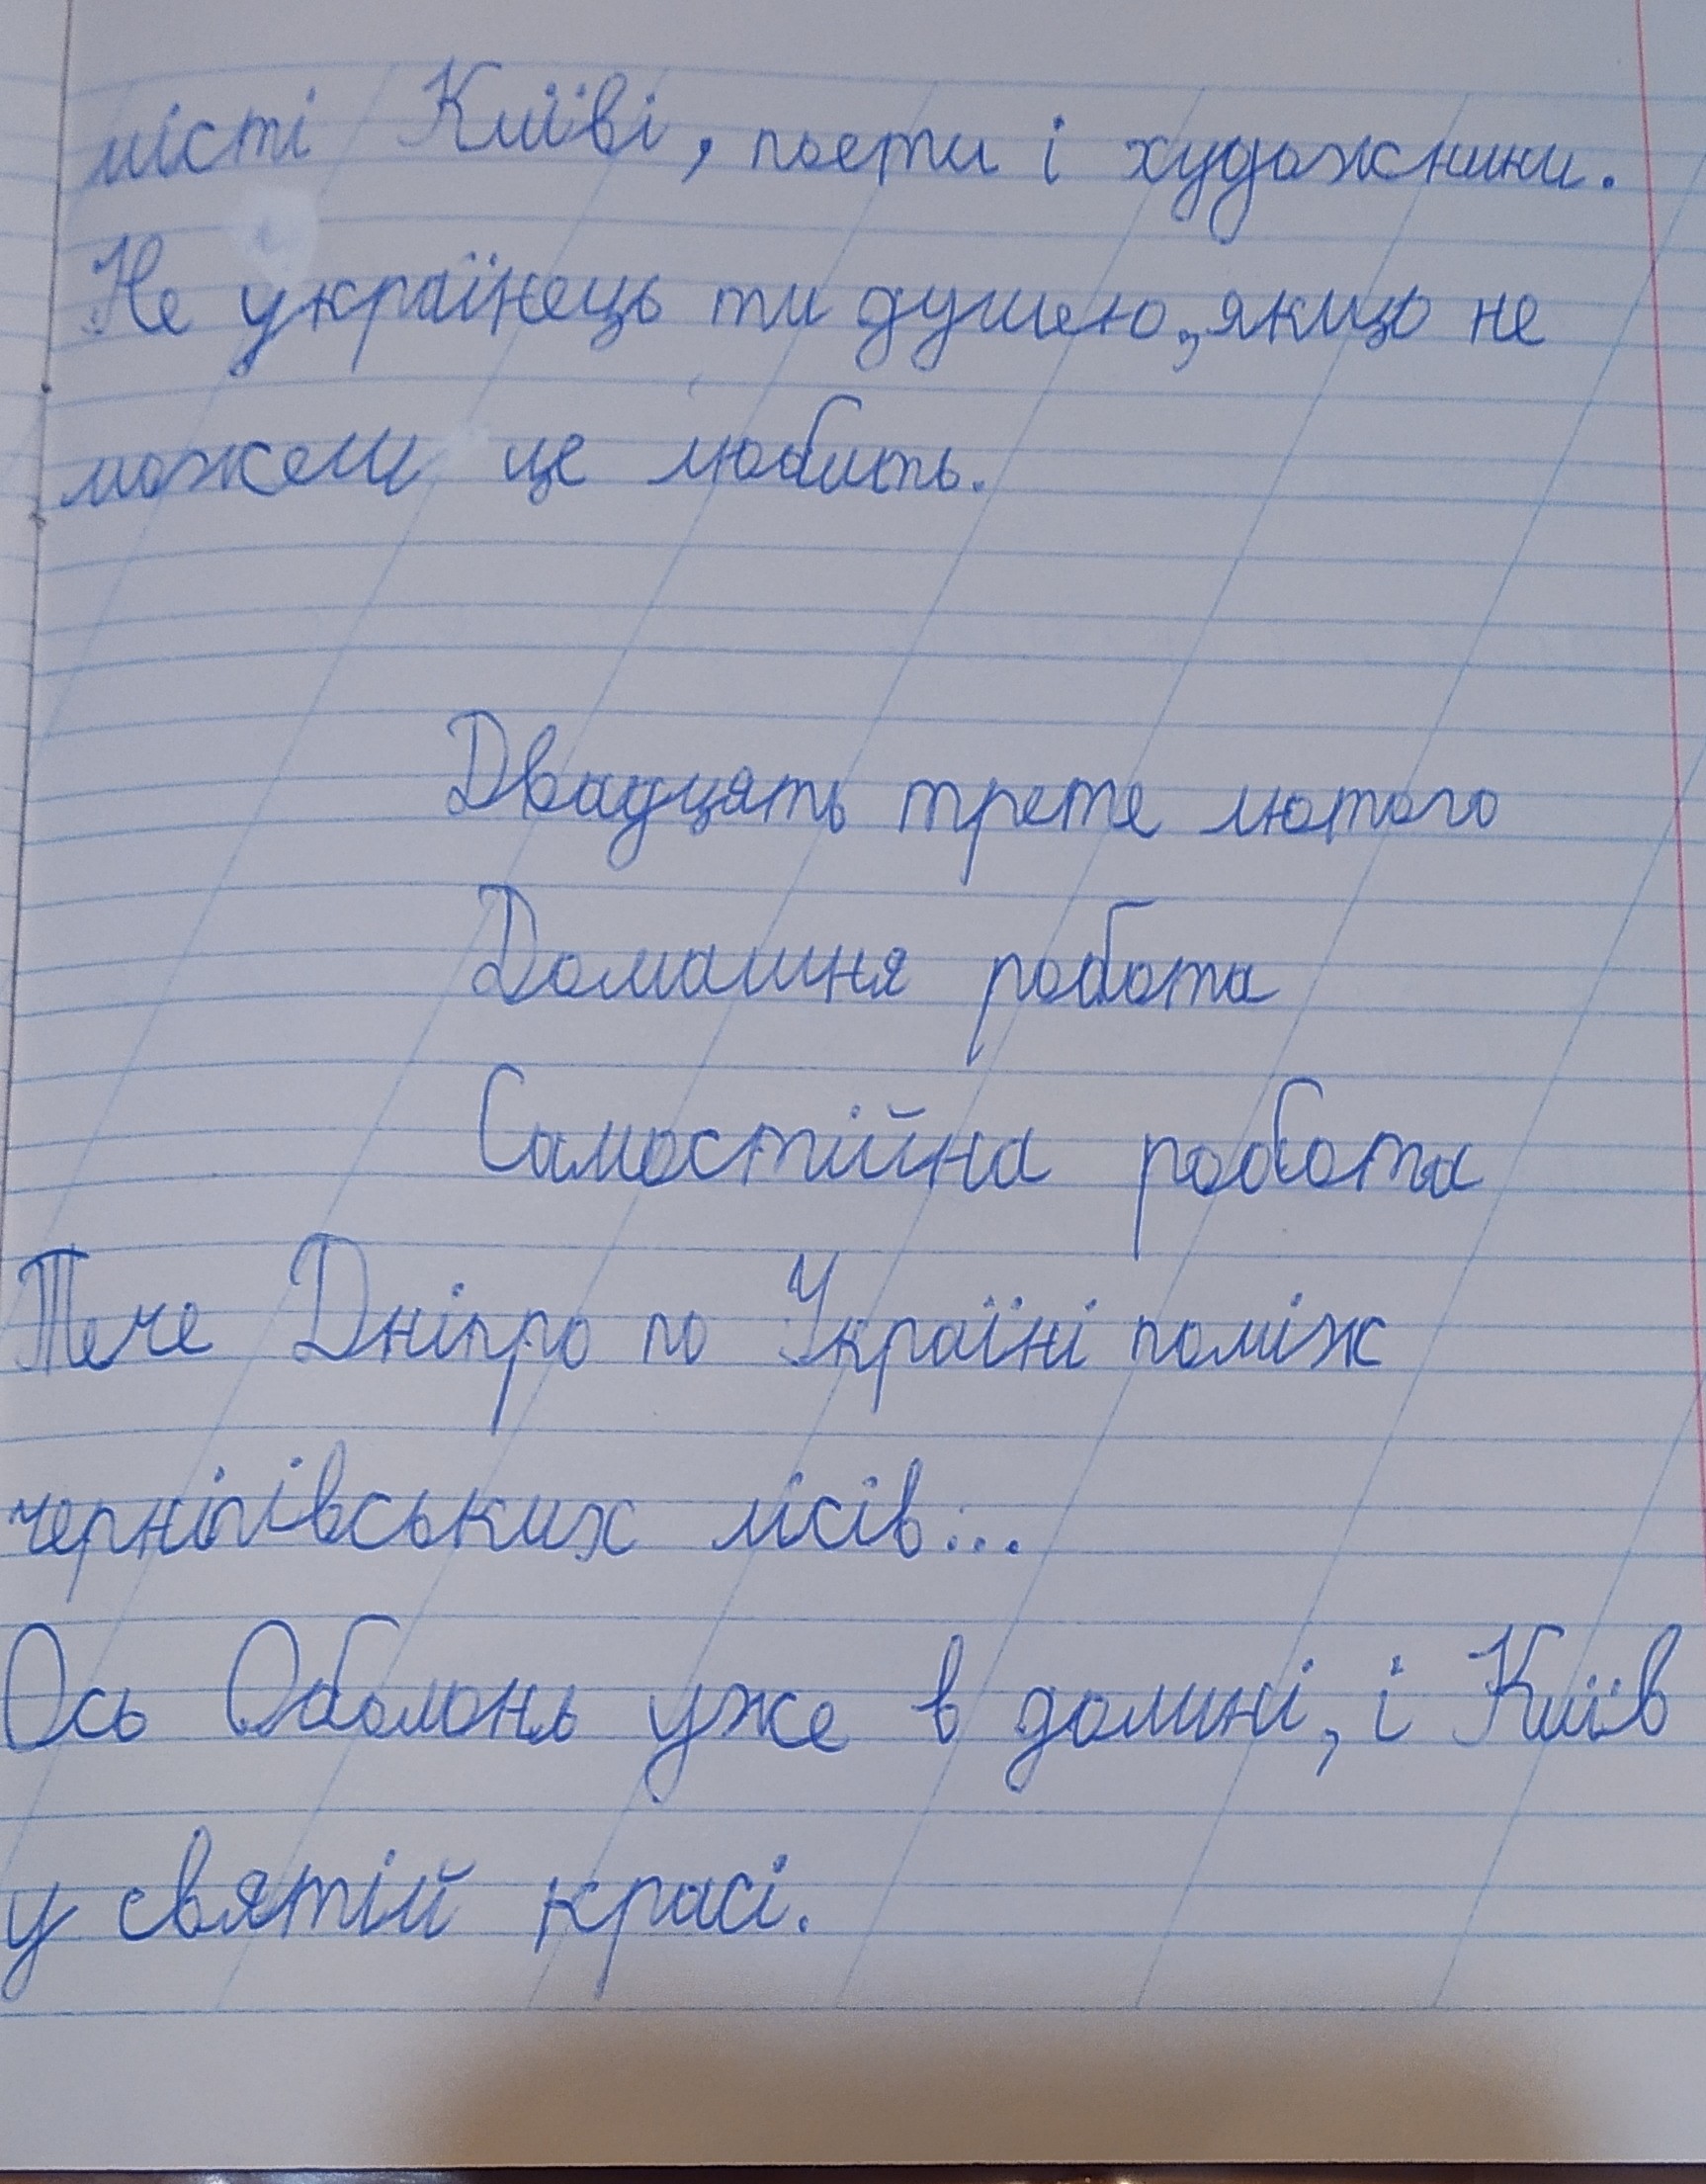 місті Київі, поети і художники.
Не українець ти душею, якщо не
можеш це любить.
Двадцять трете лютого
Домашня робота
Самостійна робота
Тече Дніпро по Україні поміж
чернігівських лісів...
Ось Оболонь уже в долині, і Київ
у святій красі.